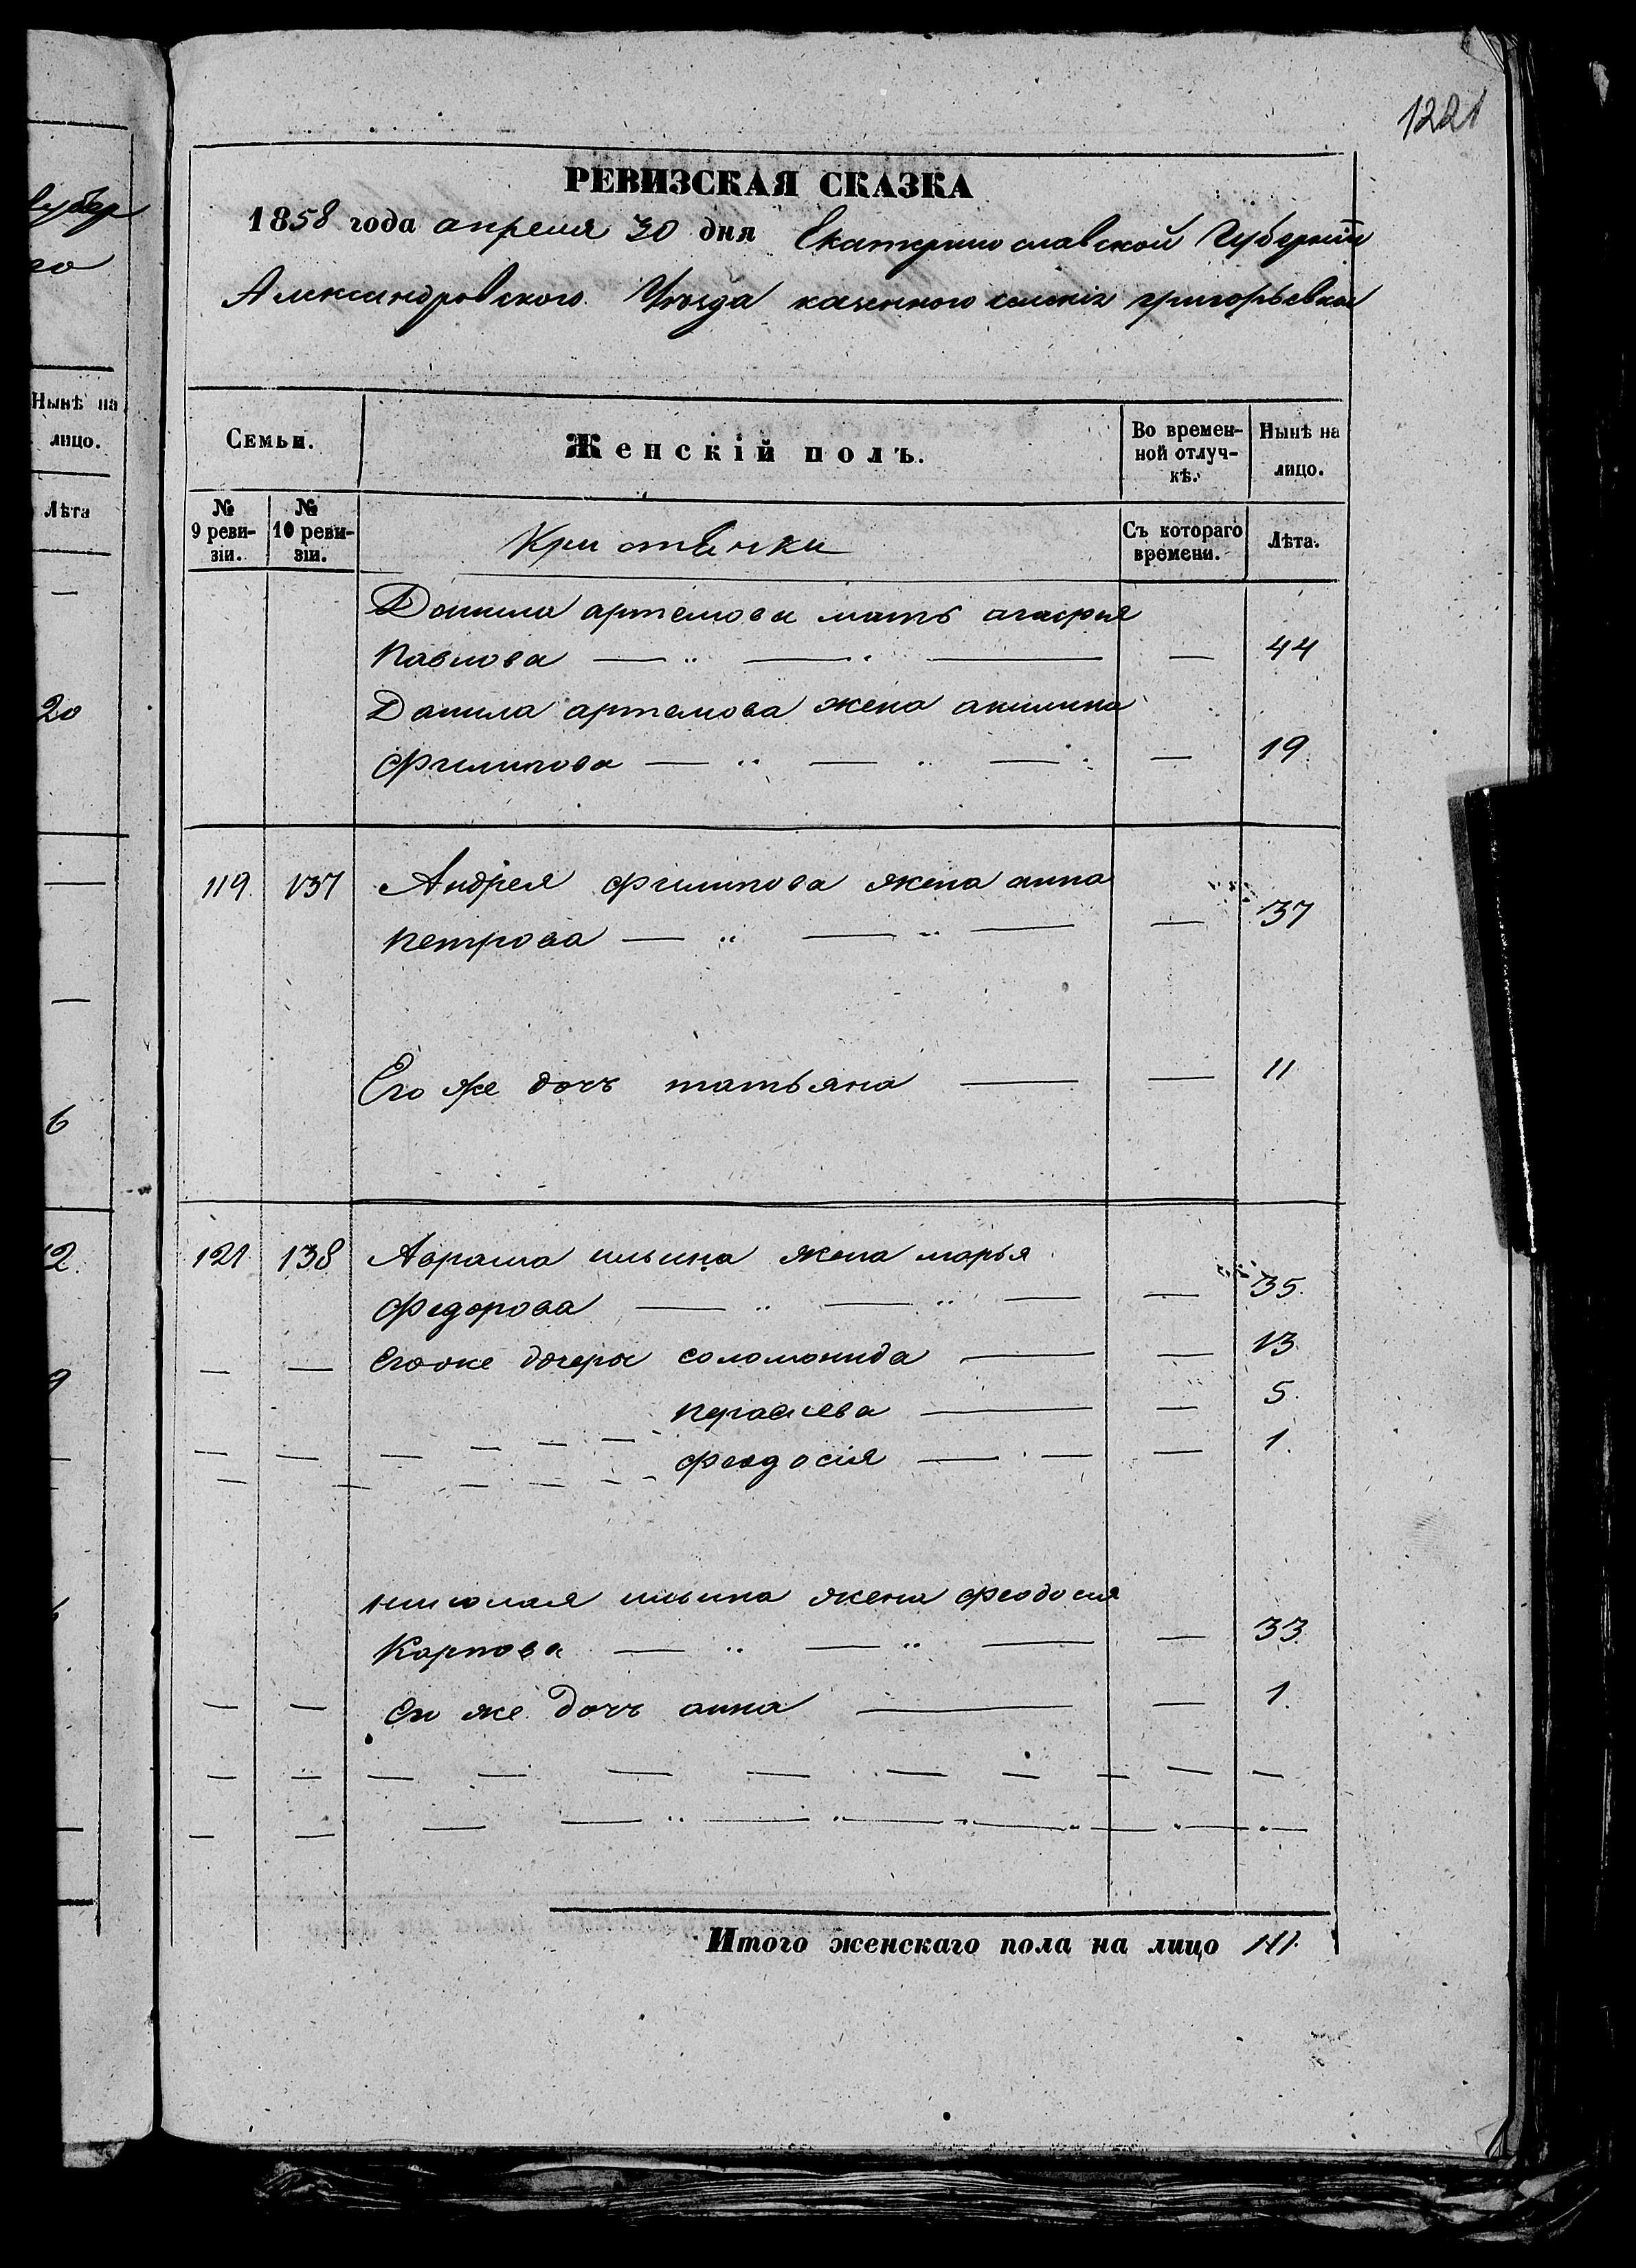 1221
РЕВИЗСКАЯ СКАЗКА
1858 года апреля 30 дня Екатеринославской Губернии
Александровского Уезда казенного селения григорьевки
Семьи. Женскій полъ. Во времен-ной отлуч-кѣ. Нынѣ на лицо.
№ 9 реви-зіи. № 10 реви-зіи. Съ котораго времени. Лѣта.
Данила артемова мать агафия
Павлова — — — — 44
Данила артемова жена акилина
филипова — — — — 19
119 137 Андрея филипова жена анна
петрова — — — — 37
Его же дочь татьяна — — 11
121 138 Аврама ильина жена марья
федорова — — — — 35.
— — его же дочеры соломонида — — 13
параскева — — 5.
феодосия — — — 1.
николая ильина жена феодосия
Карпова — — — — 33
— — его же дочь анна — — 1.
Итого женскаго пола на лицо
Губер
го
Нынѣ на
лицо.
Лѣта
20
6
2.